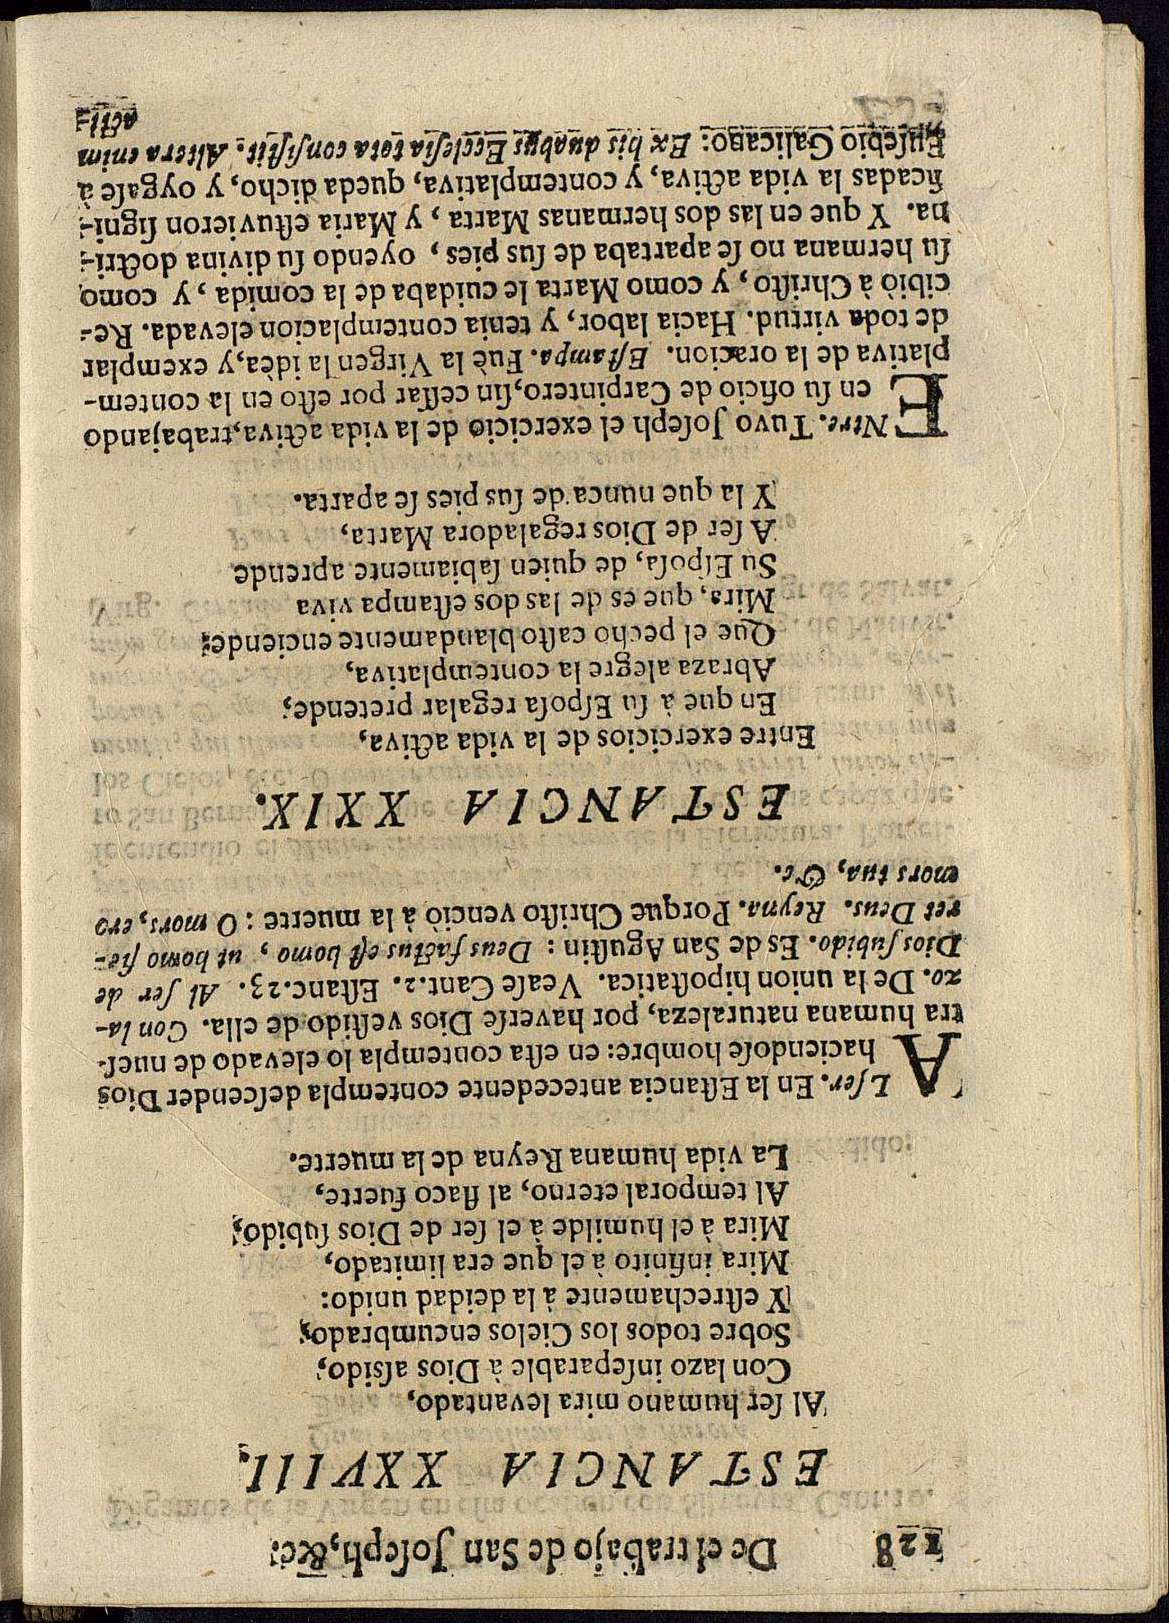 128 De el trabajo de San Joſeph, &c.
ESTANCIA XXVIII.
Al ſer humano mira levantado,
Con lazo inſeparable à Dios aſsido,
Sobre todos los Cielos encumbrado,
Y eſtrechamente à la deidad unido:
Mira infinito à el que era limitado,
Mira à el humilde à el ſer de Dios ſubido,
Al temporal eterno, al flaco fuerte,
La vida humana Reyna de la muerte.
AL ſer. En la Eſtancia antecedente contempla deſcender Dios
haciendoſe hombre: en eſta contempla lo elevado de nueſ-
tra humana naturaleza, por haverſe Dios veſtido de ella. Con la-
zo. De la union hipoſtatica. Veaſe Cant.2. Eſtanc.23. Al ſer de
Dios ſubido. Es de San Aguſtin: Deus factus eſt homo, ut homo fie-
ret Deus. Reyna. Porque Chriſto venciò à la muerte: O mors, ero
mors tua, &c.
ESTANCIA XXIX.
Entre exercicios de la vida activa,
En que à ſu Eſpoſa regalar pretende;
Abraza alegre la contemplativa,
Que el pecho caſto blandamente enciende;
Mira, que es de las dos eſtampa viva
Su Eſpoſa, de quien ſabiamente aprende
A ſer de Dios regaladora Marta,
Y la que nunca de ſus pies ſe aparta.
ENtre. Tuvo Joſeph el exercicio de la vida activa, trabajando
en ſu oficio de Carpintero, ſin ceſſar por eſto en la contem-
plativa de la oracion. Eſtampa. Fuè la Virgen la idèa, y exemplar
de toda virtud. Hacia labor, y tenia contemplacion elevada. Re-
cibiò à Chriſto, y como Marta le cuidaba de la comida, y como
ſu hermana no ſe apartaba de ſus pies, oyendo ſu divina doctri-
na. Y que en las dos hermanas Marta, y Maria eſtuvieron ſigni-
ficadas la vida activa, y contemplativa, queda dicho, y oygaſe à
Euſebio Galicano: Ex his duabus Eccleſia tota conſiſtit. Altera enim
acti-